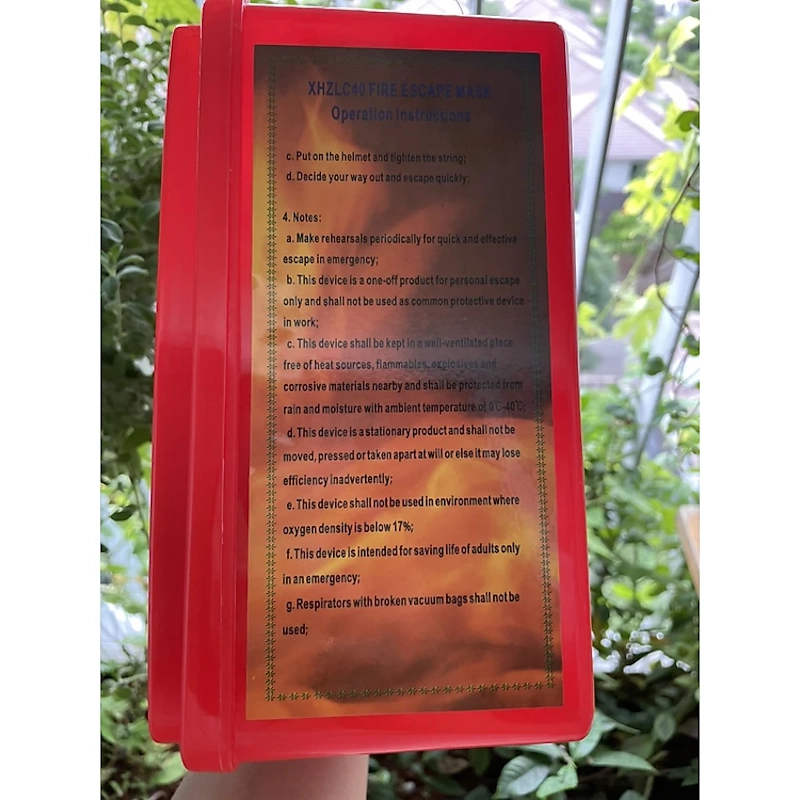 XHZLC40 FIRE ESCAPE MASK
Operation Instructions
c. Put on the helmet and tighten the string;
d. Decide your way out and escape quickly;
4. Notes:
a. Make rehearsals periodically for quick and effective
escape in emergency;
b. This device is a one-off product for personal escape
only and shall not be used as common protective device
in work;
c. This device shall be kept in a well-ventilated place
free of heat sources, flammables, explosives and
corrosive materials nearby and shall be protected from
rain and moisture with ambient temperature of 0℃-40℃;
d. This device is a stationary product and shall not be
moved, pressed or taken apart at will or else it may lose
efficiency inadvertently;
e. This device shall not be used in environment where
oxygen density is below 17%;
f. This device is intended for saving life of adults only
in an emergency;
g. Respirators with broken vacuum bags shall not be
used;